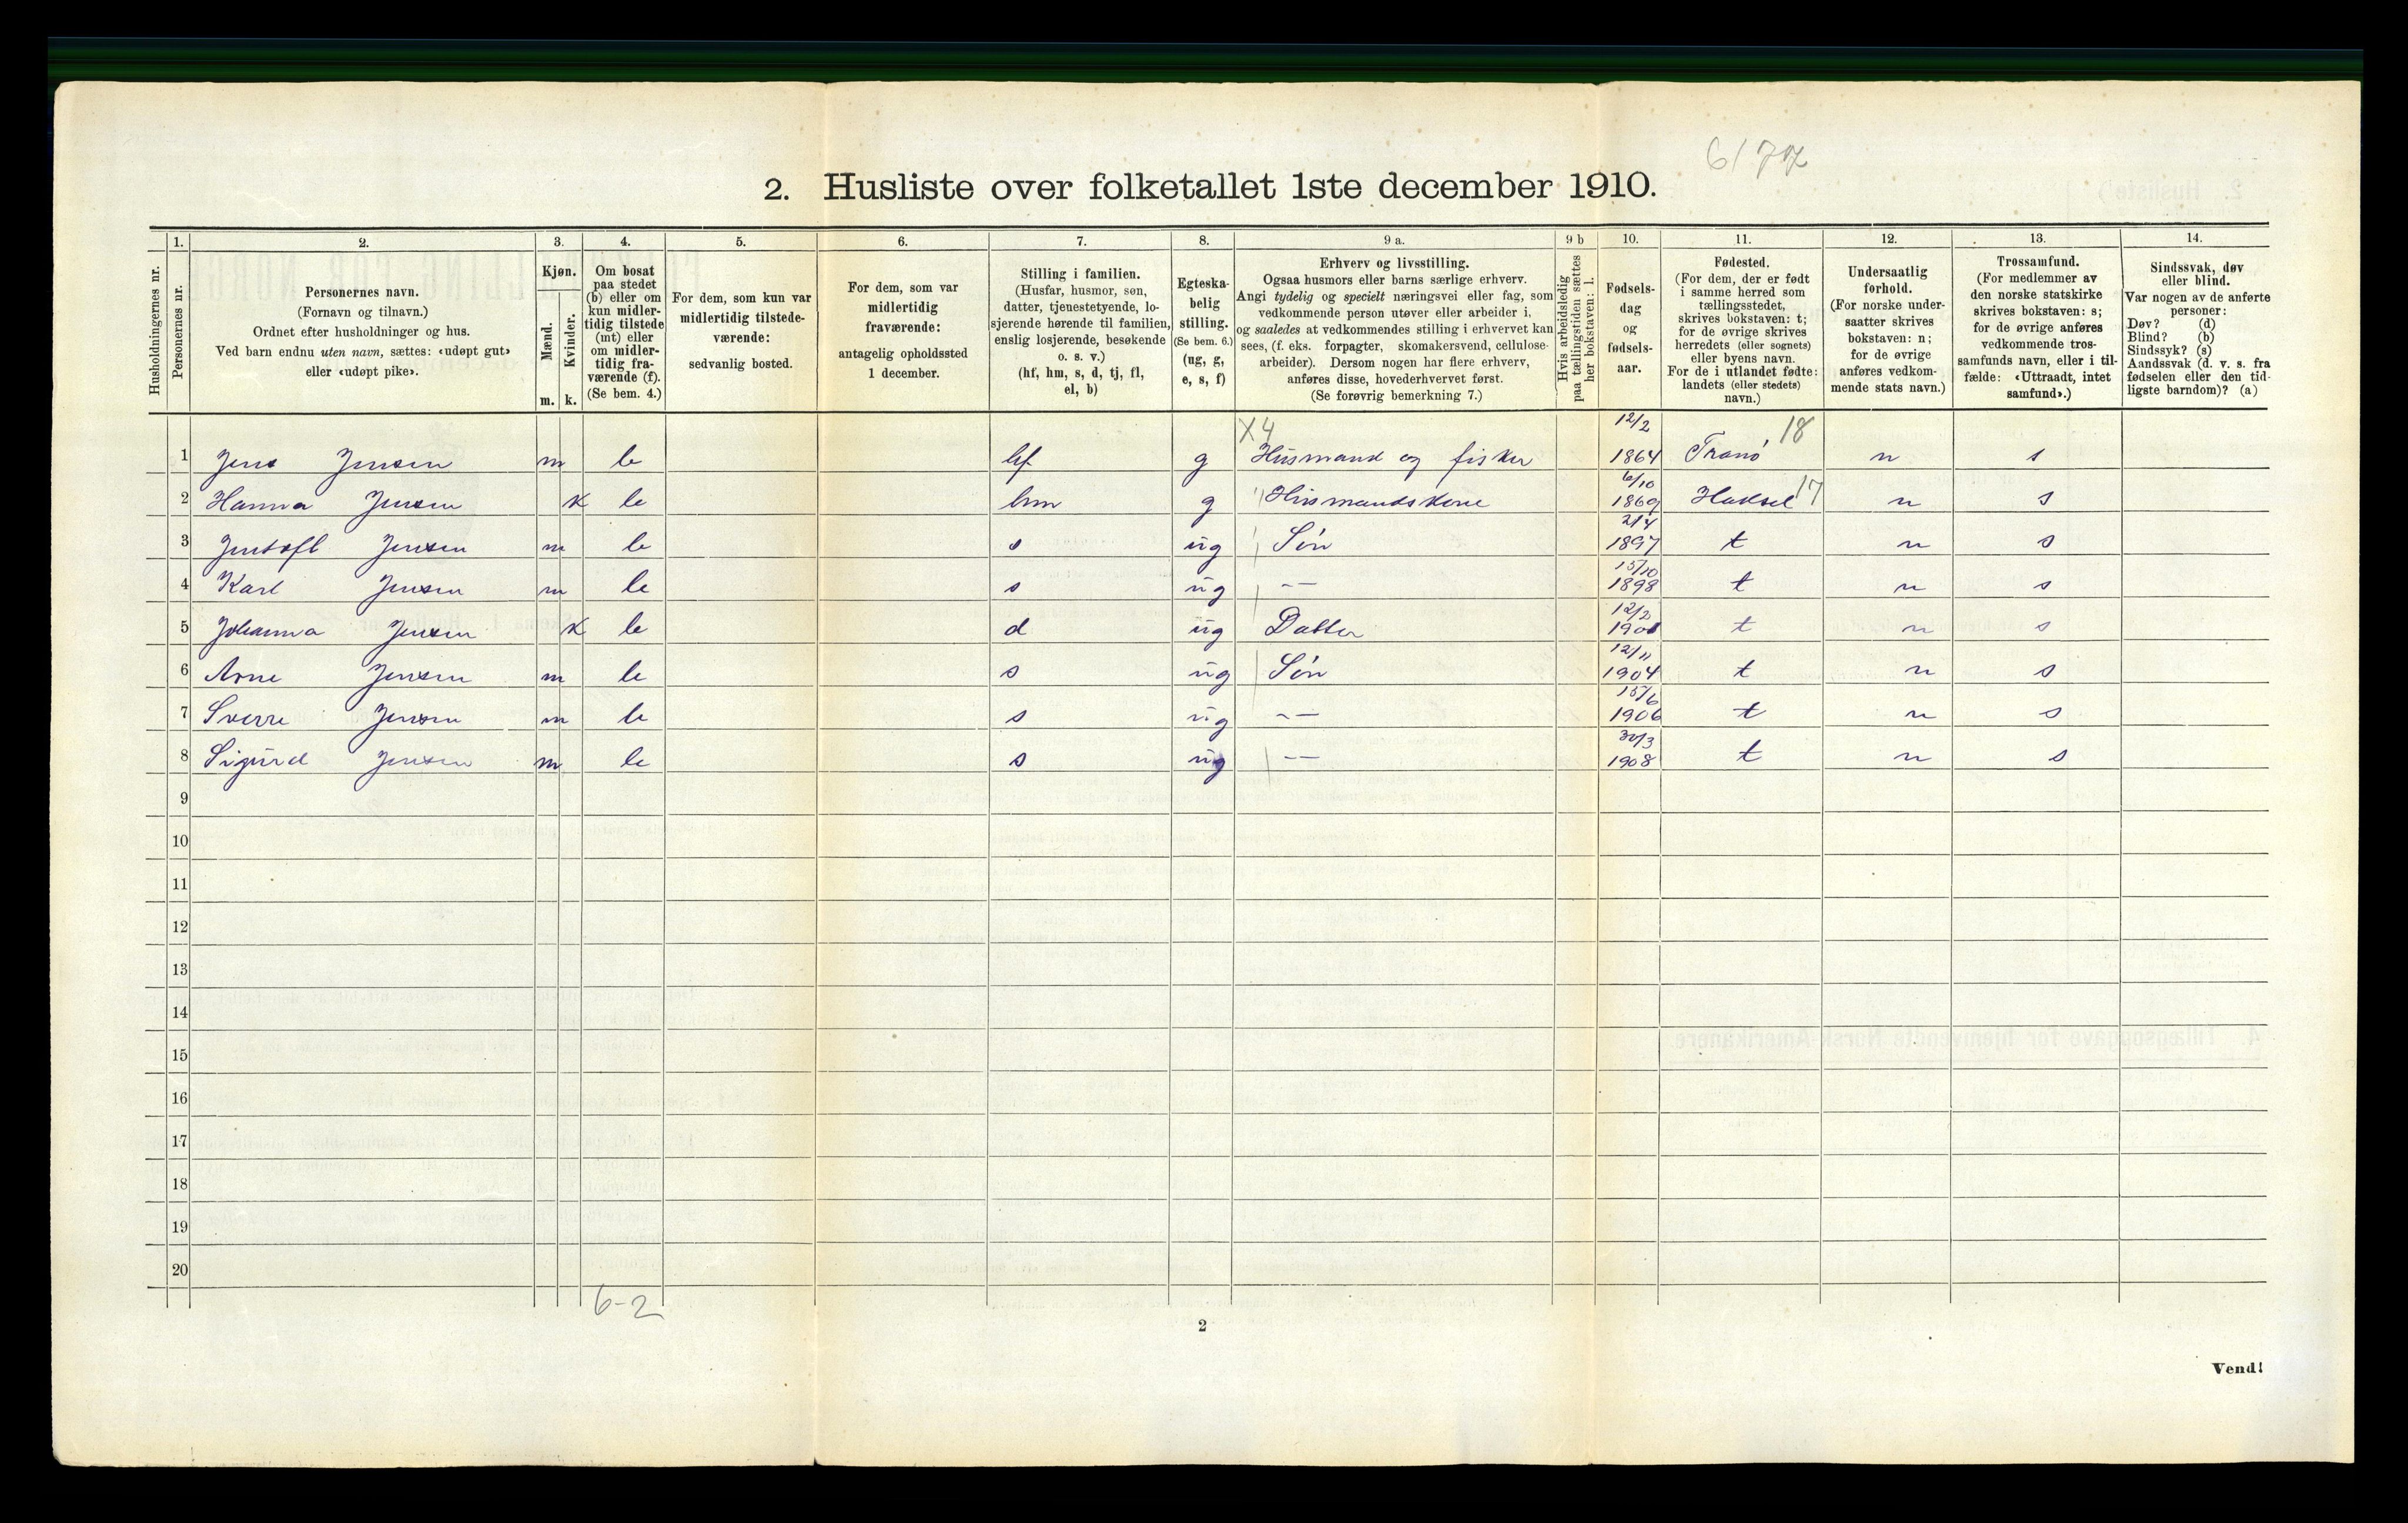 6172
2. Husliste over folketallet 1ste december 1910.
Husholdningernes nr.
1. Personernes nr.
2. Personernes navn. (Fornavn og tilnavn.) Ordnet efter husholdninger og hus. Ved barn endnu uten navn, sættes: «udøpt gut» eller «udøpt pike».
3. Kjøn. Mænd. m. Kvinder. k.
4. Om bosat paa stedet (b) eller om kun midlertidig tilstede (mt) eller om midlertidig fraværende (f). (Se bem. 4.)
5. For dem, som kun var midlertidig tilstedeværende: sedvanlig bosted.
6. For dem, som var midlertidig fraværende: antagelig opholdssted 1 december.
7. Stilling i familien. (Husfar, husmor, søn, datter, tjenestetyende, losjerende hørende til familien, enslig losjerende, besøkende o. s. v.) (hf, hm, s, d, tj, fl, el, b)
8. Egteskabelig stilling. (Se bem. 6.) (ug, g, e, s, f)
9 a. Erhverv og livsstilling. Ogsaa husmors eller barns særlige erhverv. Angi tydelig og specielt næringsvei eller fag, som vedkommende person utøver eller arbeider i, og saaledes at vedkommendes stilling i erhvervet kan sees, (f. eks. forpagter, skomakersvend, cellulosearbeider). Dersom nogen har flere erhverv, anføres disse, hovederhvervet først. (Se forøvrig bemerkning 7.)
9 b Hvis arbeidsledig paa tællingstiden sættes her bokstaven: l.
10. Fødselsdag og fødselsaar.
11. Fødested. (For dem, der er født i samme herred som tællingsstedet, skrives bokstaven: t; for de øvrige skrives herredets (eller sognets) eller byens navn. For de i utlandet fødte: landets (eller stedets) navn.)
12. Undersaatlig forhold. (For norske undersaatter skrives bokstaven: n; for de øvrige anføres vedkommende stats navn.)
13. Trossamfund. (For medlemmer av den norske statskirke skrives bokstaven: s; for de øvrige anføres vedkommende trossamfunds navn, eller i tilfælde: «Uttraadt, intet samfund».)
14. Sindssvak, døv eller blind. Var nogen av de anførte personer: Døv? (d) Blind? (b) Sindssyk? (s) Aandssvak (d. v. s. fra fødselen eller den tidligste barndom)? (a)
X4 12/2 18
1 Jens Jensen m b hf g Husmand og fisker 1864 Tranö n s
2 Hanna Jensen k b hm g Husmandskone 6/10 1869 Hadsel 17 n s
3 Jentoft Jensen m b s ug Sön 21/4 1897 t n s
4 Karl Jensen m b s ug -- 15/10 1898 t n s
5 Johanna Jensen k b d ug Datter 12/2 1901 t n s
6 Arne Jensen m b s ug Sön 12/11 1904 t n s
7 Sverre Jensen m b s ug -- 15/6 1906 t n s
8 Sigurd Jensen m b s ug -- 30/3 1908 t n s
9
10
11
12
13
14
15
16
17
18
19
20
6-2
2
Vend!